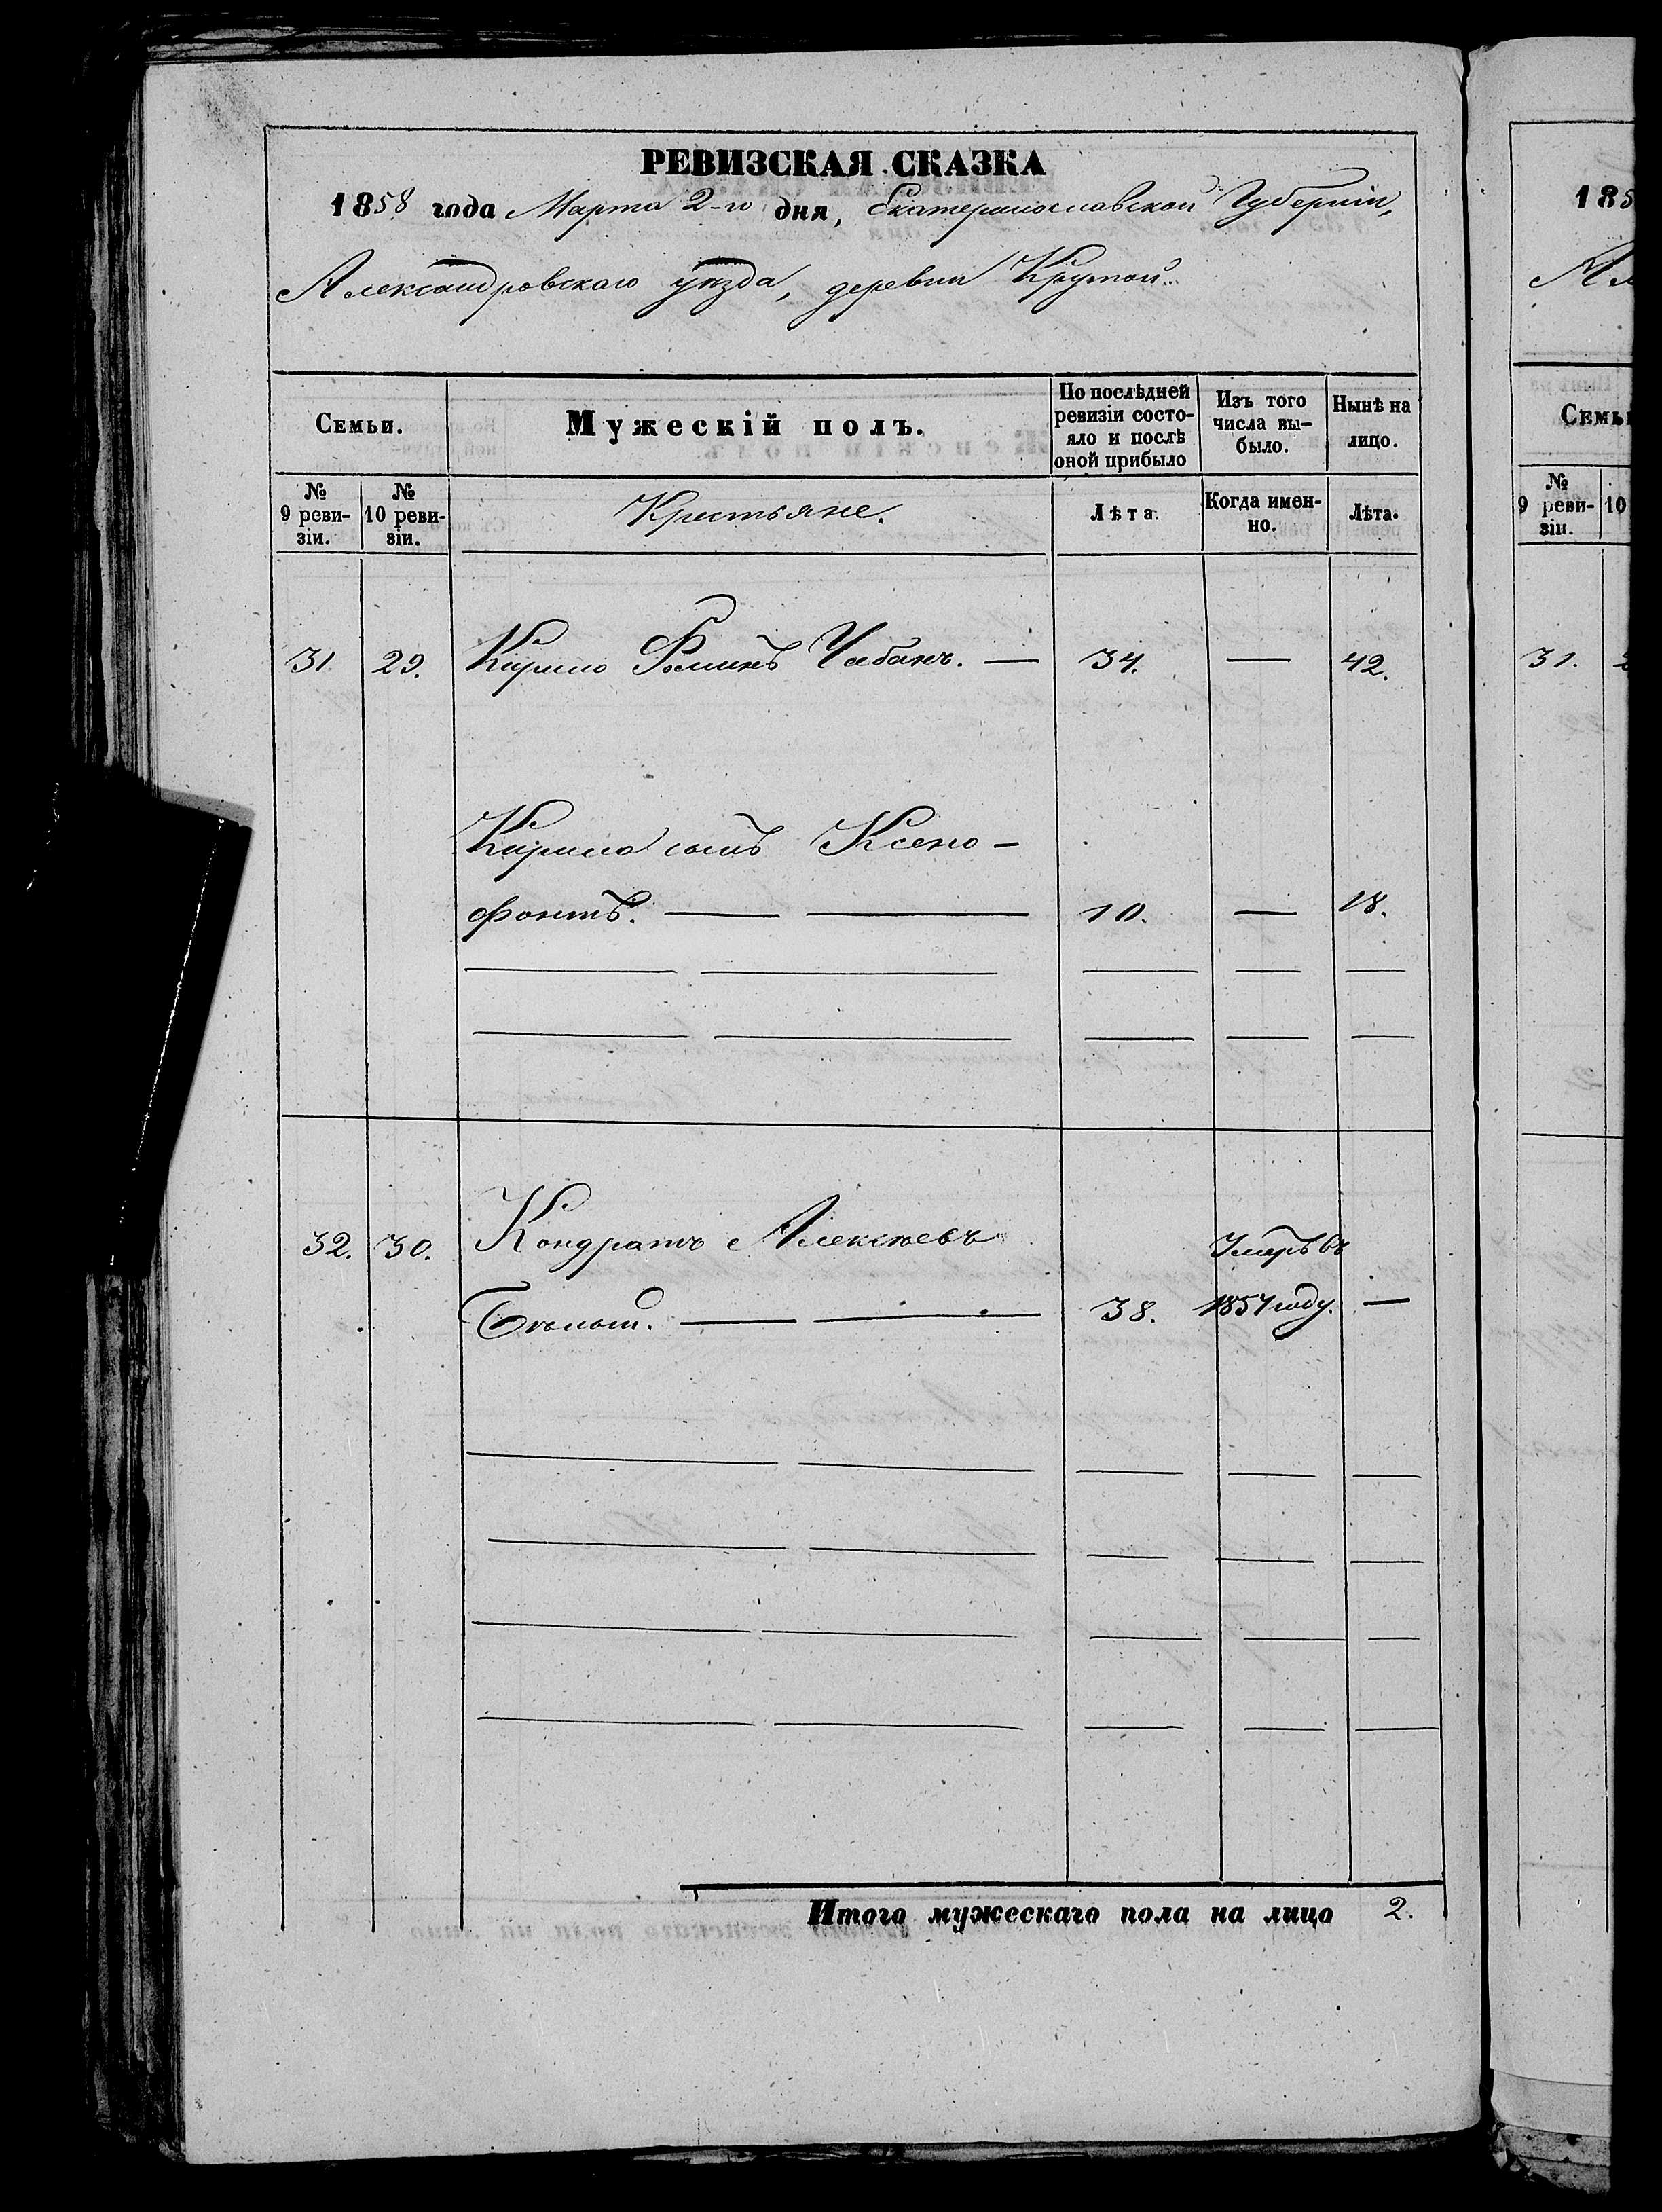 РЕВИЗСКАЯ СКАЗКА
1858 года Марта 2-го дня, Екатеринославской Губерніи,
Александровскаго уѣзда, деревни Крутой
Семьи.
Мужескій полъ.
По послѣдней ревизіи состо-
яло и послѣ
оной прибыло
Изъ того
числа вы-
было.
Нынѣ на
лицо.
№
9 реви-
зіи.
№
10 реви-
зіи.
Крестьяне.
Лѣта.
Когда имен-
но.
Лѣта.
31. 29. Кирило Фоминъ Чабанъ. — 34. — 42.
Кирила сынъ Ксено-
фонтъ. — 10. — 18.
32. 30. Кондратъ Алексѣевъ Умеръ въ
Бѣлый. — 38. 1857 году. —
Итого мужескаго пола на лицо 2.
185
Семьи
№
9 реви-
зіи.
10
31.